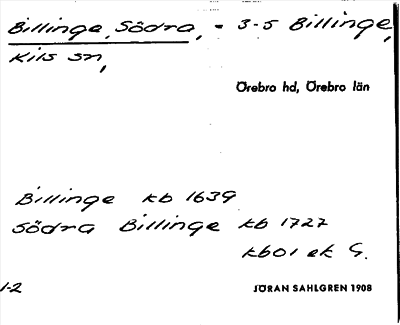 Billinge, Södra, - 3-5 Billinge,
Kils sn,
Örebro hd, Örebro län
Billinge kb 1639
Södra Billinge kb 1727
kb01 ek G.
1-2
JÖRAN SAHLGREN 1908